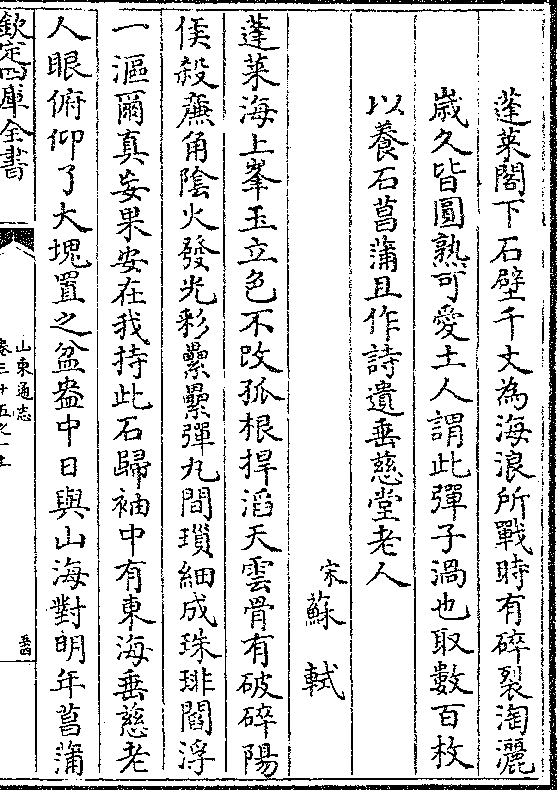 蓬萊閣下石壁千丈為海浪所戰時有碎裂淘灑
歲久皆圓熟可愛土人謂此彈子渦也取數百枚
以養石菖蒲且作詩遺垂慈堂老人
宋蘇軾
蓬萊海上峯玉立色不改孤根捍滔天雲骨有破碎陽
侯殺亷角陰火發光彩纍纍彈丸間瑣細成珠琲閻浮
一漚爾真妄果安在我持此石歸袖中有東海垂慈老
人眼俯仰了大塊置之盆盎中日與山海對明年菖蒲
欽定四庫全書
山東通志
卷三十五之一上